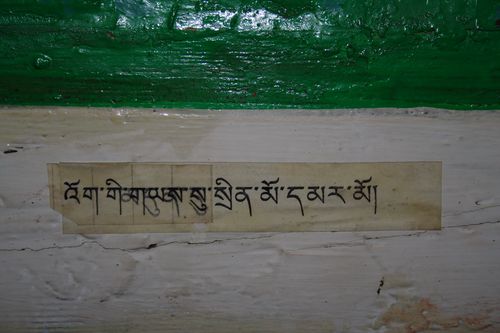 འོག་གི་གཡས་སུ་སྲིན་མོ་དམར་མོ།